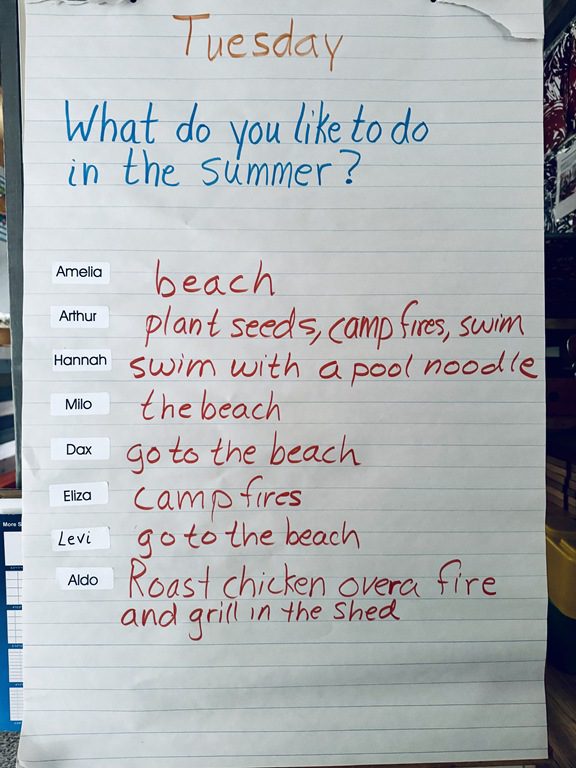 Tuesday
What do you like to do
in the summer?
Amelia beach
Arthur plant seeds, campfires, swim
Hannah swim with a pool noodle
Milo the beach
Dax go to the beach
Eliza campfires
Levi go to the beach
Aldo Roast chicken over a fire
and grill in the shed
More S